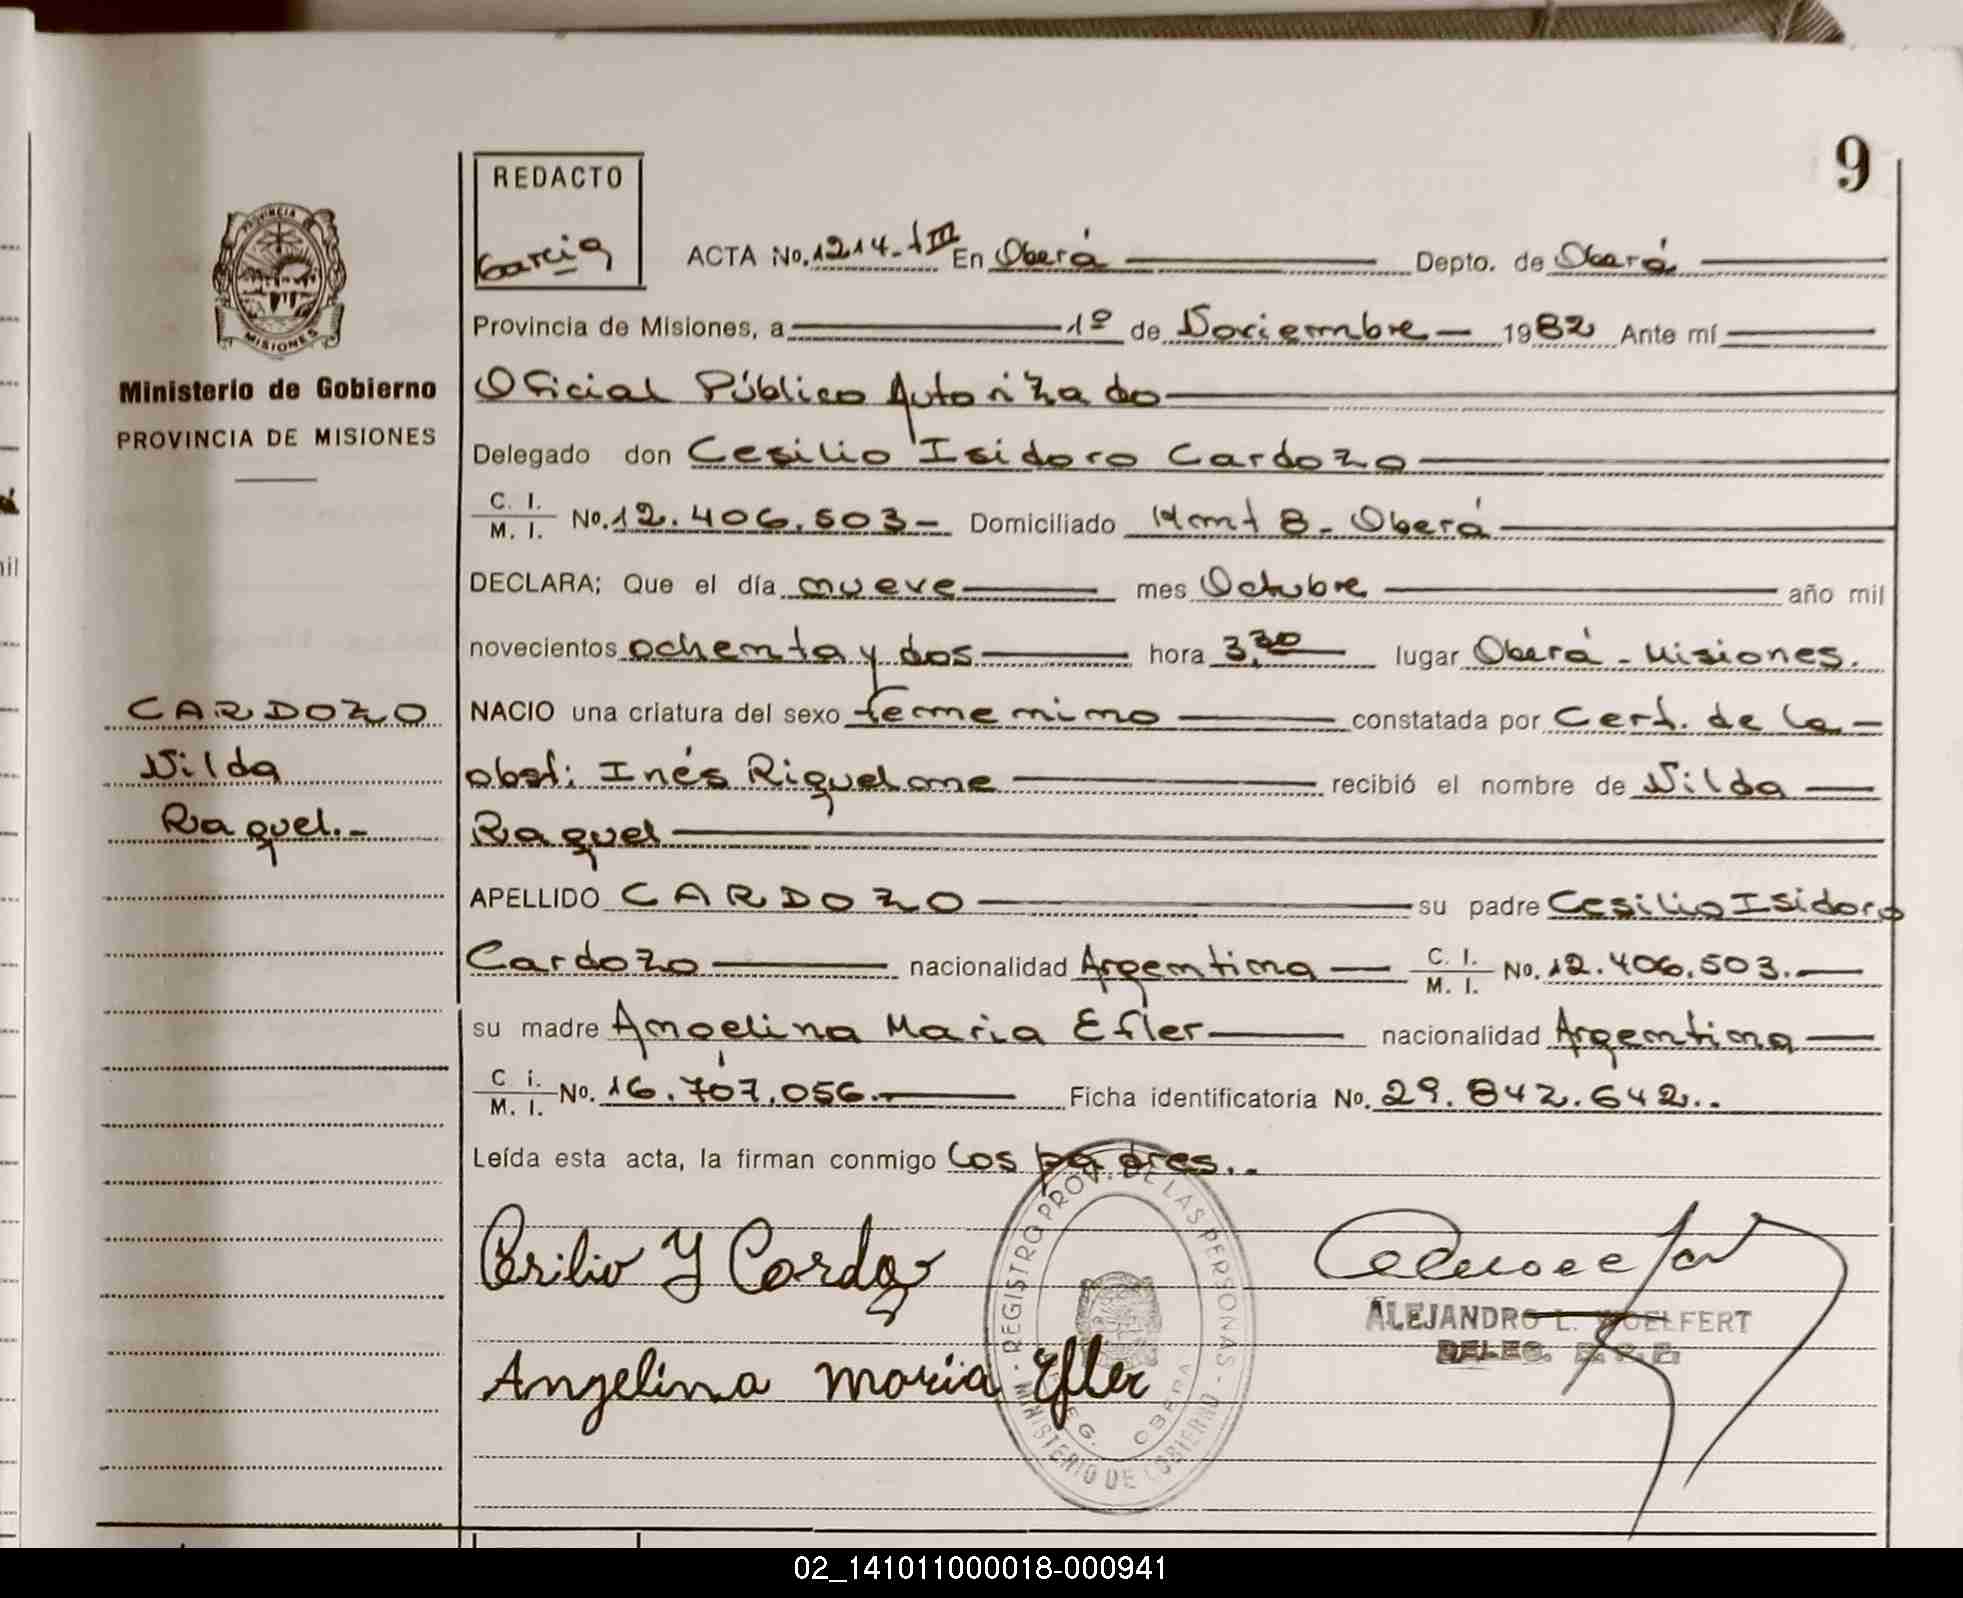 9
REDACTO
Garcia
PROVINCIA
MISIONES
Ministerio de Gobierno
PROVINCIA DE MISIONES
CARDOZO
Nilda
Raquel.-
ACTA No. 1214-tIII En Oberá Depto. de Oberá
Provincia de Misiones, a 1º de Noviembre 1982 Ante mí
Oficial Público Autorizado
Delegado don Cesilio Isidoro Cardozo
C. I. / M. I. No. 12.406.503- Domiciliado Oberá
DECLARA; Que el día nueve mes Octubre año mil
novecientos ochenta y dos hora 3,30 lugar Oberá - Misiones.
NACIO una criatura del sexo femenino constatada por Cert. de la
obst: Inés Riquelme recibió el nombre de Nilda
Raquel
APELLIDO CARDOZO su padre Cesilio Isidoro
Cardozo nacionalidad Argentina C. I. / M. I. No. 12.406.503.
su madre Angelina Maria Efler nacionalidad Argentina
C i. / M. I. No. 16.707.056. Ficha identificatoria No. 29.842.642..
Leída esta acta, la firman conmigo los padres..
Angelina Maria Efler
REGISTRO PROV. DE LAS PERSONAS - MINISTERIO DE GOBIERNO
OBERA
ALEJANDRO L. WOELFERT
DELEG.
02_141011000018-000941